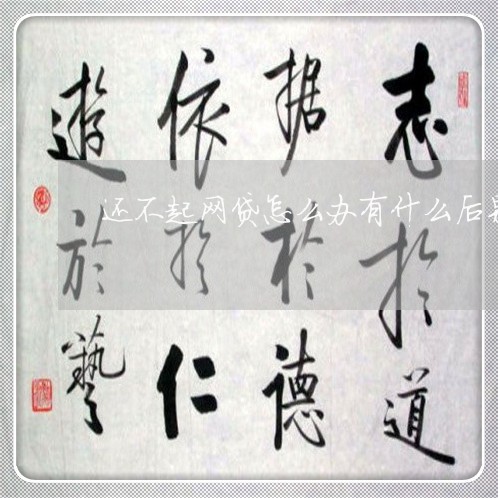 志於道
据於德
依於仁
遊於藝
还不起网贷怎么办有什么后